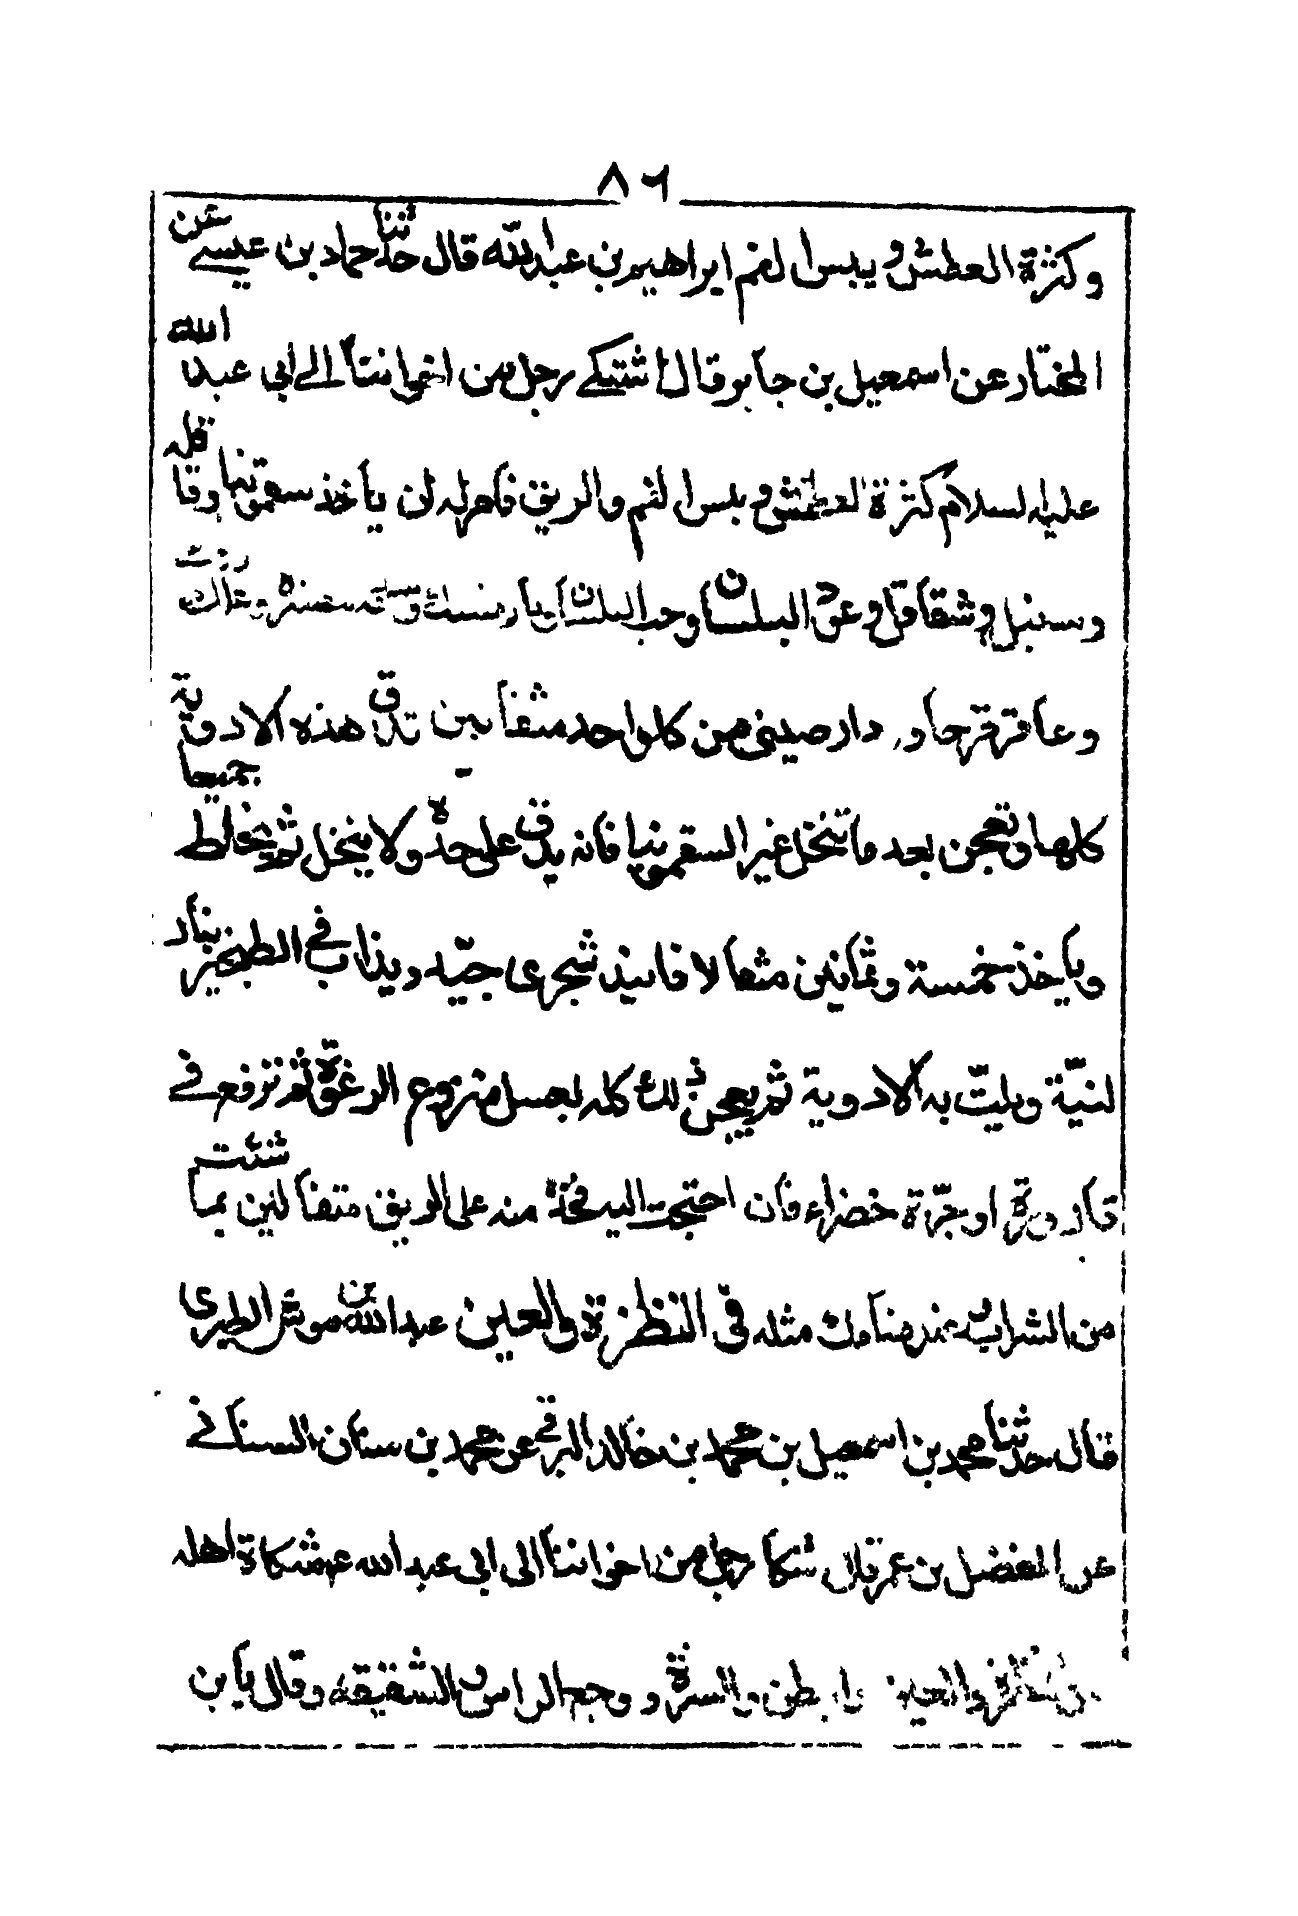 ٨٦
وكثرة العطش ويبس الفم ابراهيم بن عبدالله قال حدثنا حماد بن عيسى عن
المختار عن اسمعيل بن جابر قال اشتكى رجل من اخواننا الى ابي عبدالله
عليه السلام كثرة العطش ويبس الفم والريق فامره ان ياخذ سقمونيا وقاقله
وسنبل وشقاقل وعود البلسان وحب البلسان
وعاقر قرحا ودارصيني من كل واحد مثقالين تدق هذه الادوية
كلها وتعجن بعد ما تنخل غير السقمونيا فانه يدق على حدة ولا ينخل ثم يخالط جميعا
وياخذ خمسة وثمانين مثقالا فانيذ شجرى جيد ويذاب في الطبخير بنار
لينة ويلت به الادوية ثم يعجن ذلك كله بعسل منزوع الرغوة ثم ترفع في
قارورة او جرة خضراء فان احتجت اليه فخذ منه على الريق مثقالين بما شئت
من الشراب وعند منامك مثله في النظرة والعين عبدالله بن موسى الطبرى
قال حدثنا محمد بن اسمعيل بن محمد بن خالد البرقى عن محمد بن سنان السناني
عن المفضل بن عمر قال شكا رجل من اخواننا الى ابي عبدالله ع شكاة اهله
من النظرة والعين والبطن والسرة ووجع الراس والشقيقة وقال يا بن